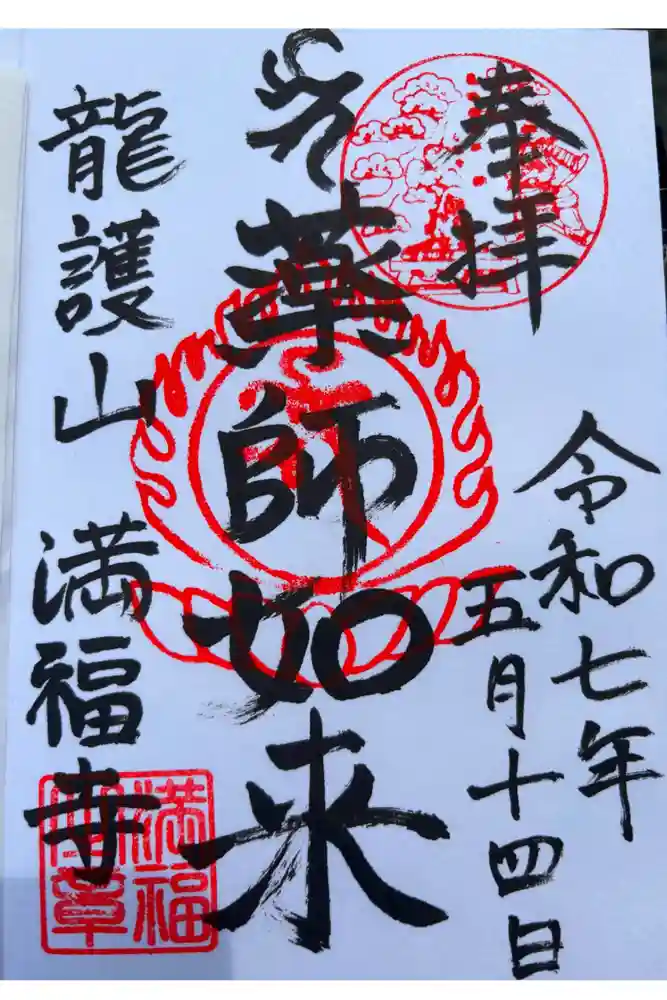 奉拝
令和七年
五月十四日
薬師如来
龍護山
満福寺